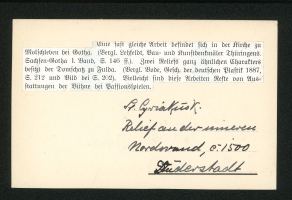 Eine fast gleiche Arbeit befindet sich in der Kirche zu
Molschleben bei Gotha. (Vergl. Lehfeldt, Bau- und Kunstdenkmäler Thüringens.
Sachsen-Gotha I. Band, S. 146 ff.). Zwei Reliefs ganz ähnlichen Charakters
besitzt der Domschatz zu Fulda. (Vergl. Bode, Gesch. der deutschen Plastik 1887,
S. 212 und Bild bei S. 202). Vielleicht sind diese Arbeiten Reste von Aus-
stattungen der Bühne bei Passionsspielen.
St. Cyriakusk.
Relief an der inneren
Nordwand, c. 1500
Duderstadt